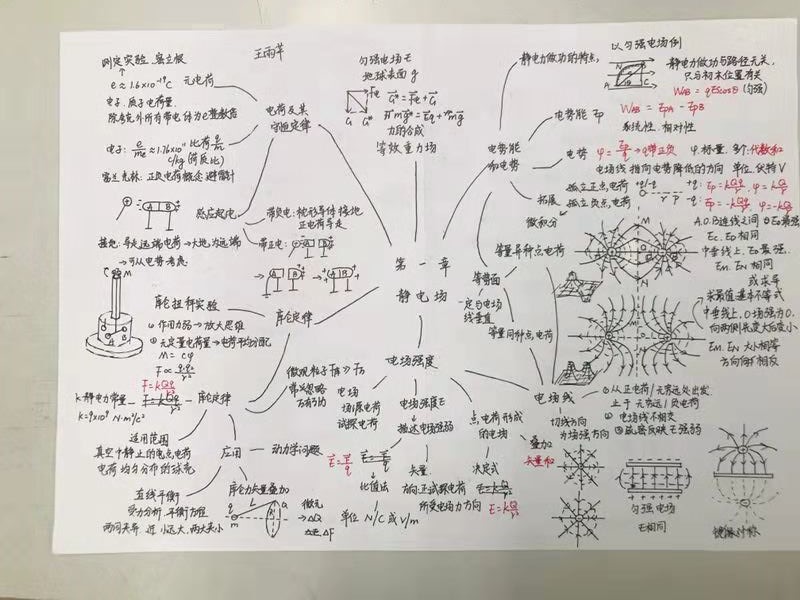 王雨芊
第一章
静电场
测定实验 密立根
e≈1.6×10⁻¹⁹C 元电荷
电子、质子电荷量
电子: e/me ≈1.76×10¹¹ 比荷
C/kg (荷质比)
富兰克林: 正负电荷概念 避雷针
电荷及其
守恒定律
感应起电
带负电: 枕形导体接地
正电荷导走
带正电:
接地: 导走远端电荷→大地为远端
→可从电势考虑
匀强电场E
地球表面g
G* = Fe + G
力的合成
等效重力场
库仑扭秤实验
库仑定律
① 作用力弱→放大思维
② 无定量电荷量→电荷平均分配
F=kQq/r²
k:静电力常量
k=9×10⁹ N·m²/c²
库仑定律
适用范围
真空中静止的点电荷
电荷均匀分布的球壳
应用
动力学问题
直线平衡
受力分析,平衡方程
两同夹异 近小远大,两大夹小
库仑力矢量叠加
微元
→△Q
微观粒子
常忽略
万有引力
电场强度
电场
场源电荷
试探电荷
电场强度E
描述电场强弱
E=F/q
比值法
矢量
方向:正试探电荷
所受电场力方向
单位 N/C 或 V/m
点电荷形成
的电场
决定式
E=kQ/r²
电场线
切线方向
为场强方向
叠加
矢量和
① 从正电荷/无穷远处出发
止于无穷远/负电荷
② 电场线不相交
③ 疏密反映E强弱
匀强电场
E相同
镜像对称
电势能
和电势
静电力做功的特点
以匀强电场例
静电力做功与路径无关,
只与初末位置有关
WAB = qEscosθ (匀强)
电势能 Ep
WAB = EpA - EpB
系统性、相对性
电势
φ=Ep/q →q带正负
φ:标量, 多个:代数和
电场线指向电势降低的方向 单位:伏特V
拓展
微积分
孤立正点电荷
孤立负点电荷
+q: Ep=kQq/r, φ=kQ/r
-q: Ep=-kQq/r, φ=-kQ/r
等势面
一定与电场
线垂直
等量异种点电荷
A.O.B连线之间 O E最弱
Ec. ED 相同
中垂线上, E最强.
Em. EN 相同
等量同种点电荷
或求导
求最值:基本不等式
中垂线上, O场强为0.
向两侧先变大后变小
EM. EN 大小相等
方向相反